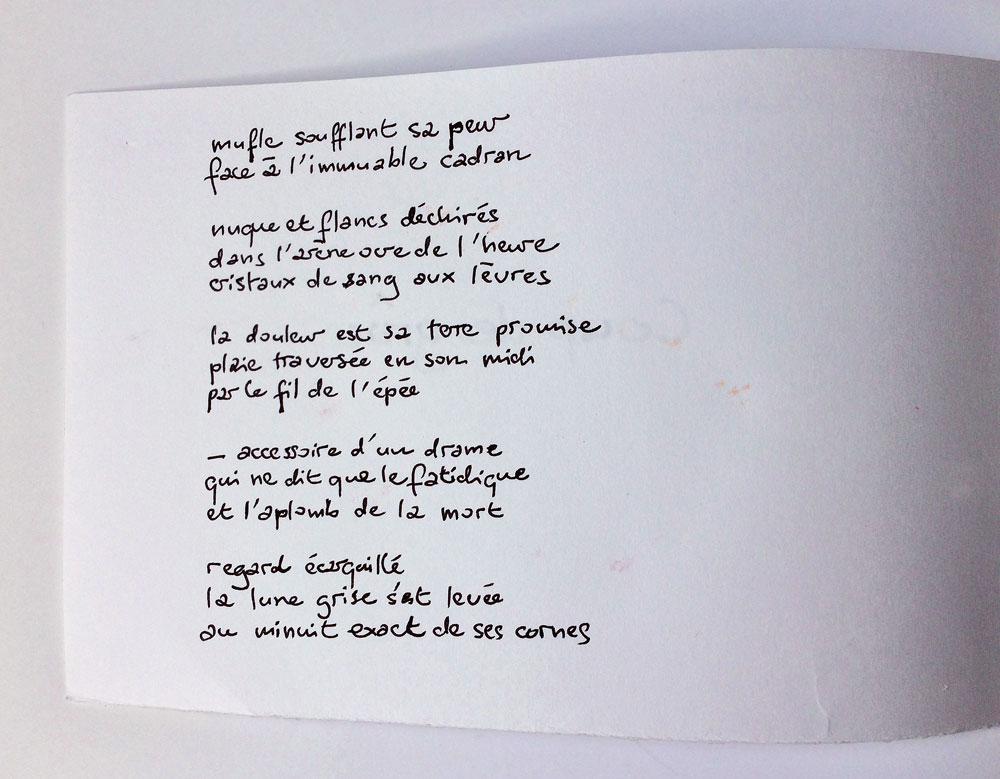 mufle soufflant sa peur
face à l'immuable cadran
nuque et flancs déchirés
dans l'arène ocre de l'heure
cristaux de sang aux lèvres
la douleur est sa terre promise
plaie traversée en son midi
par le fil de l'épée
– accessoire d'un drame
qui ne dit que le fatidique
et l'aplomb de la mort
regard écarquillé
la lune grise s'est levée
au minuit exact de ses cornes